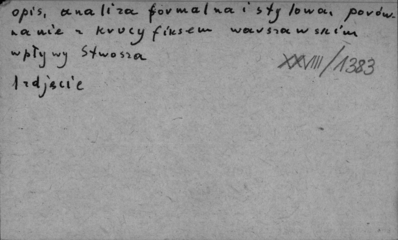 opis, analiza formalna i stylowa, porów-
nanie z krucyfiksem warszawskim
wpływy Stwosza
XXVIII/1383
1 zdjęcie